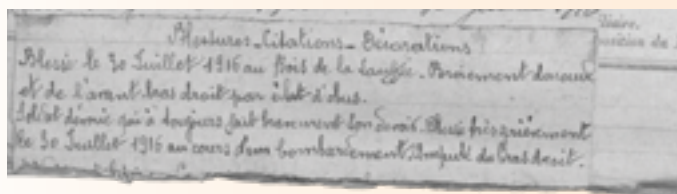 Blessures - Citations - Décorations
Blessé le 30 Juillet 1916 au Bois de la
et de l'avant bras droit par éclat d'obus.
Soldat dévoué qui à toujours fait bravement son devoir. Blessé très grièvement
le 30 Juillet 1916 au cours d'un bombardement, Amputé du bras droit.